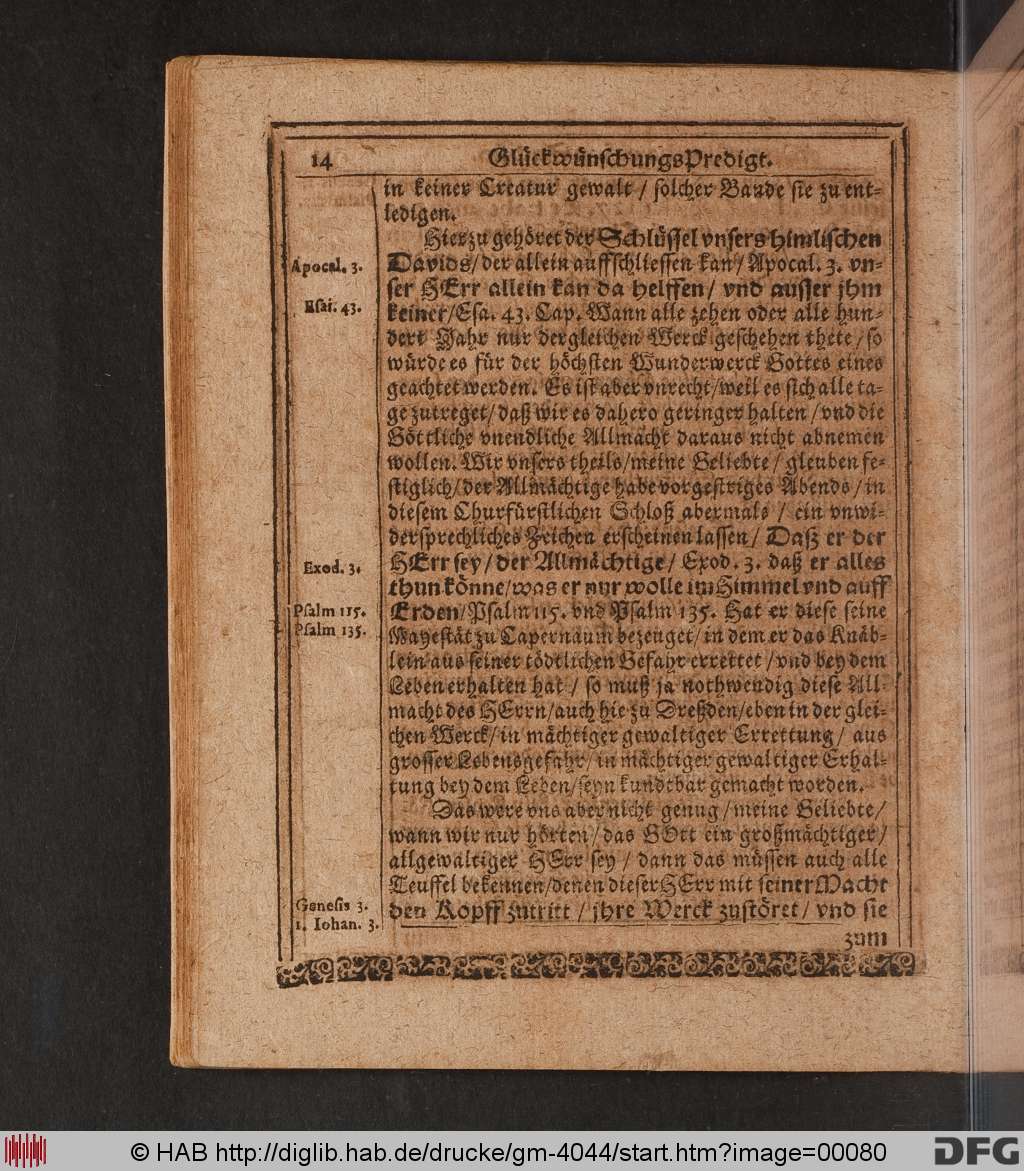 14
GlückwünschungsPredigt.
in keiner Creatur gewalt / solcher Bande sie zu ent-
ledigen.
Hierzu gehöret der Schlüssel vnsers himlischen
Apocal. 3.
Davids / der allein auffschliessen kan / Apocal. 3. vn-
ser HErr allein kan da helffen / vnd ausser jhm
Esai. 43.
keiner / Esa. 43. Cap. Wann alle zehen oder alle hun-
dert Jahr nur dergleichen Werck geschehen thete / so
würde es für der höchsten Wunderwerck Gottes eines
geachtet werden. Es ist aber vnrecht / weil es sich alle ta-
ge zutreget / daß wir es dahero geringer halten / vnd die
Göttliche vnendliche Allmacht daraus nicht abnemen
wollen. Wir vnsers theils / meine Geliebte / gleuben fe-
stiglich / der Allmächtige habe vorgestriges Abends / in
diesem Churfürstlichen Schloß abermals / ein vnwi-
dersprechliches Zeichen erscheinen lassen / Daß er der
Exod. 3.
HErr sey / der Allmächtige / Exod. 3. daß er alles
thun könne / was er nur wolle im Himmel vnd auff
Psalm 115.
Erden / Psalm 115. vnd Psalm 135. Hat er diese seine
Psalm 135.
Mayestät zu Capernaum bezeuget / in dem er das Knäb-
lein aus seiner tödtlichen Gefahr errettet / vnd bey dem
Leben erhalten hat / so muß ja nothwendig diese All-
macht des HErrn / auch hie zu Dreßden / eben in der glei-
chen Werck / in mächtiger gewaltiger Errettung / aus
grosser Lebensgefahr / in mächtiger gewaltiger Erhal-
tung bey dem Leben / seyn kundtbar gemacht worden.
Das were vns aber nicht genug / meine Geliebte /
wann wir nur hörten / das GOtt ein großmächtiger /
allgewaltiger HErr sey / dann das müssen auch alle
Teuffel bekennen / denen dieser HErr mit seiner Macht
Genesis 3.
den Kopff zutritt / jhre Werck zustöret / vnd sie
1. Iohan. 3.
zum
© HAB http://diglib.hab.de/drucke/gm-4044/start.htm?image=00080
DFG